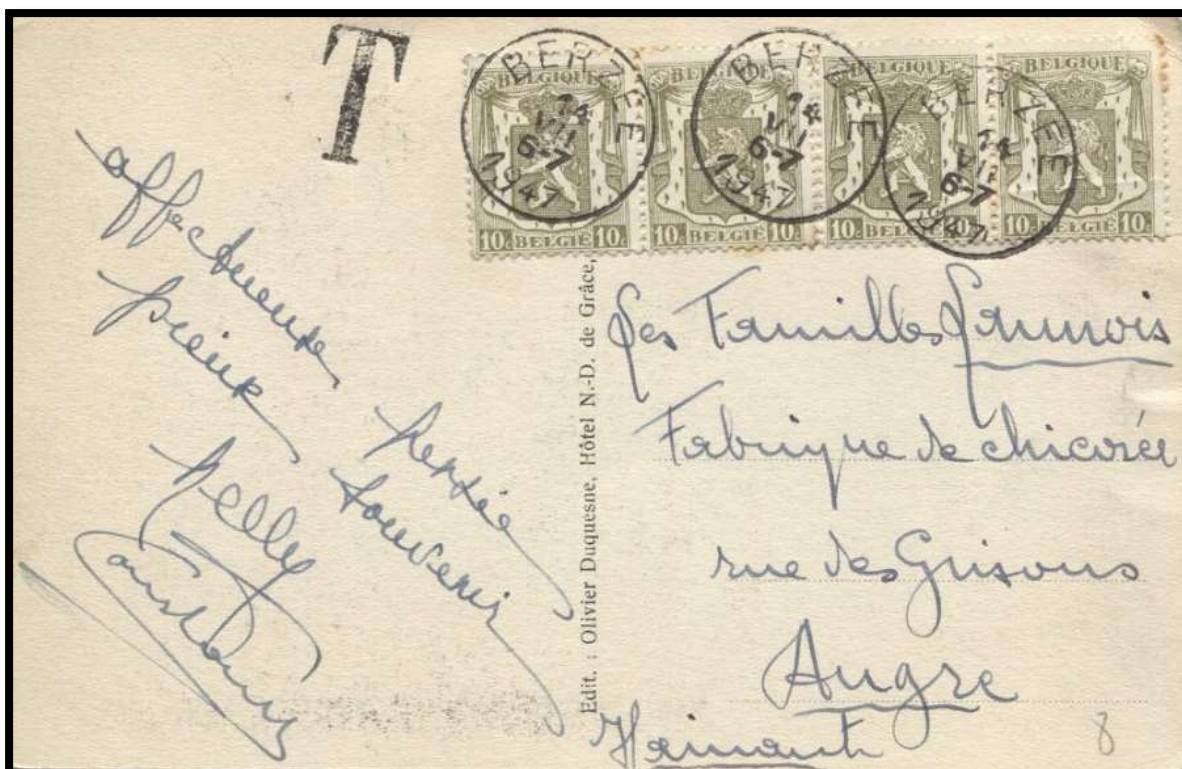 T
BERZEE
14
VII
6-7
1947
BERZEE
14
VII
6-7
1947
BERZEE
14
VII
6-7
1947
BELGIQUE
BELGIQUE
BELGIQUE
BELGIQUE
10c BELGIË 10c
10c BELGIË 10c
10c BELGIË 10c
10c BELGIË 10c
affectueuse pensée
pieux souvenir
Nelly
Edit. : Olivier Duquesne, Hôtel N.-D. de Grâce,
Les Familles
Fabrique de chicorée
rue des Grisons
Augre
Hainaut
8